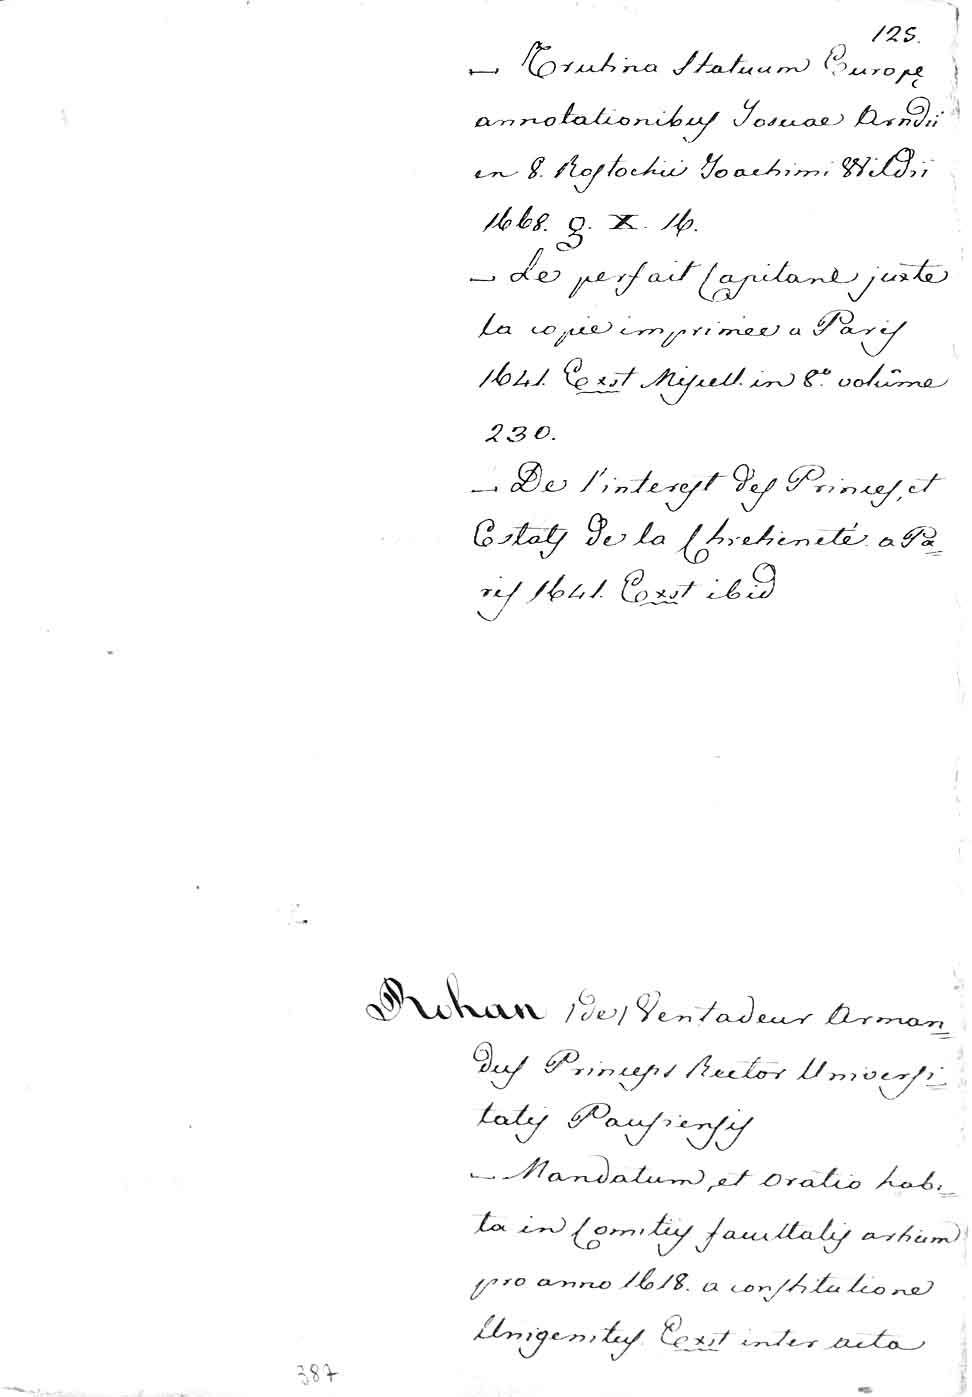 125.
— Trutina Statuum Europę
annotationibus Josuae Arndii
in 8. Rostochii Joachimi Wildii
1668. g. X. 16.
— Le perfait Capitane juxte
la copie imprimee a Paris
1641. Exst Miscell. in 8.º volume
230.
— De l'interest des Princes, et
Estats de la Chretieneté a Pa=
ris 1641. Exst ibid
Rohan (de) Ventadeur Arman=
dus Princeps Rector Universi=
tatis Parisiensis
— Mandatum, et Oratio habi=
ta in Comitiis facultatis artium
pro anno 1618. a constitutione
Unigenitus Exst inter acta
387